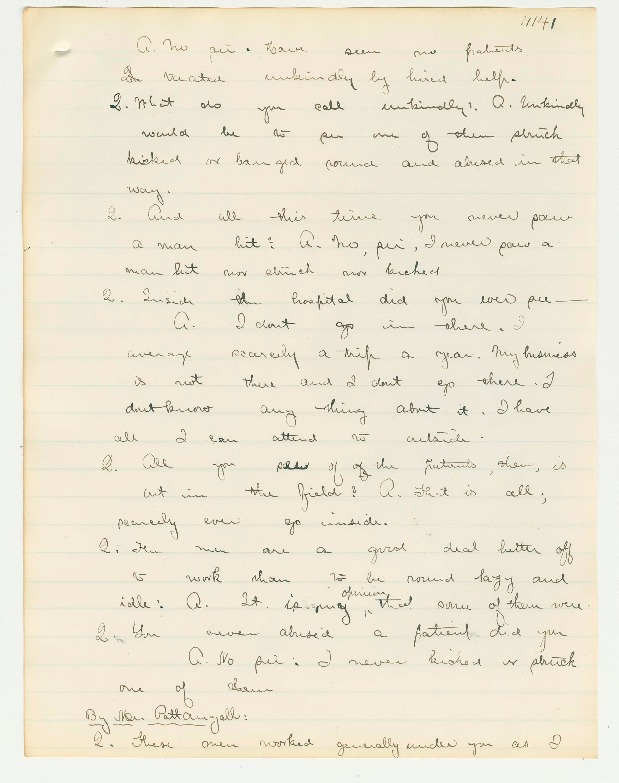 1141
A. No sir. Have seen no patients
treated unkindly by hired help.
Q. What do you call unkindly? A. Unkindly
would be to see one of them struck
kicked or banged round and abused in that
way.
Q. And all this time you never saw
a man hit? A. No, sir, I never saw a
man hit nor struck nor kicked
Q. Inside the hospital did you ever see—
A. I dont go in there. I
average scarcely a trip a year. My business
is not there and I dont go there. I
dont know any thing about it. I have
all I can attend to outside.
Q. All you see of of the patients, then, is
out in the field? A. That is all;
scarcely ever go inside.
Q. The men are a good deal better off
to work than to be round lazy and
idle? A. It is my opinion, that some of them were.
Q. You never abused a patient did you
A. No sir. I never kicked or struck
one of them
By Mr. Pattangall:
Q. These men worked generally under you as I